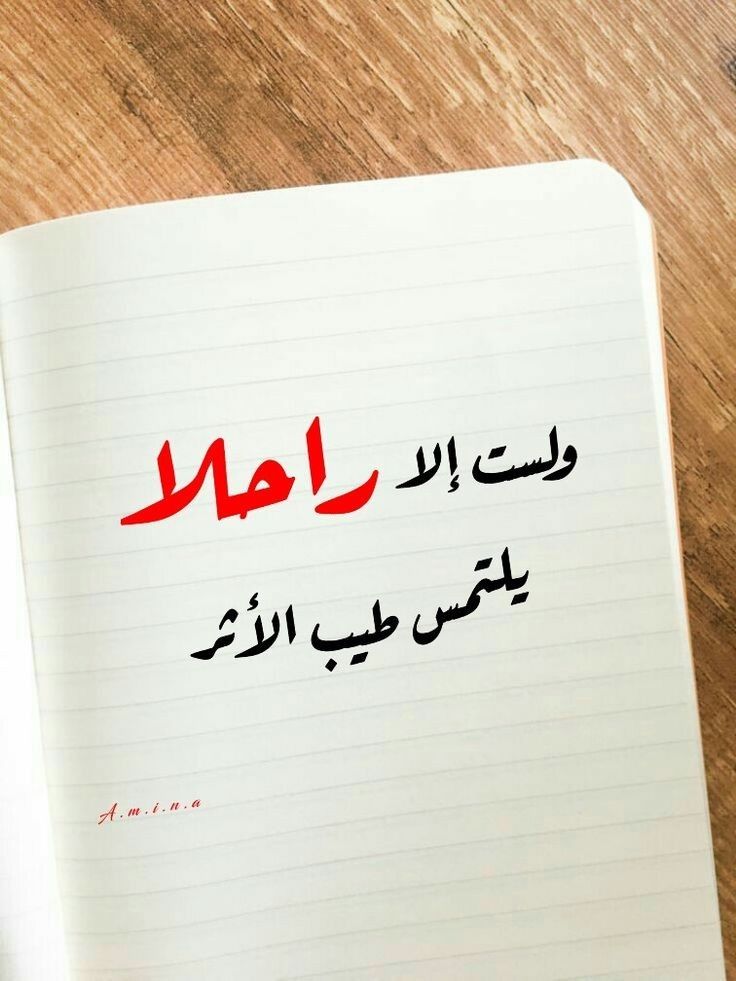 ولست إلا راحلا
يلتمس طيب الأثر
A.m.i.n.a